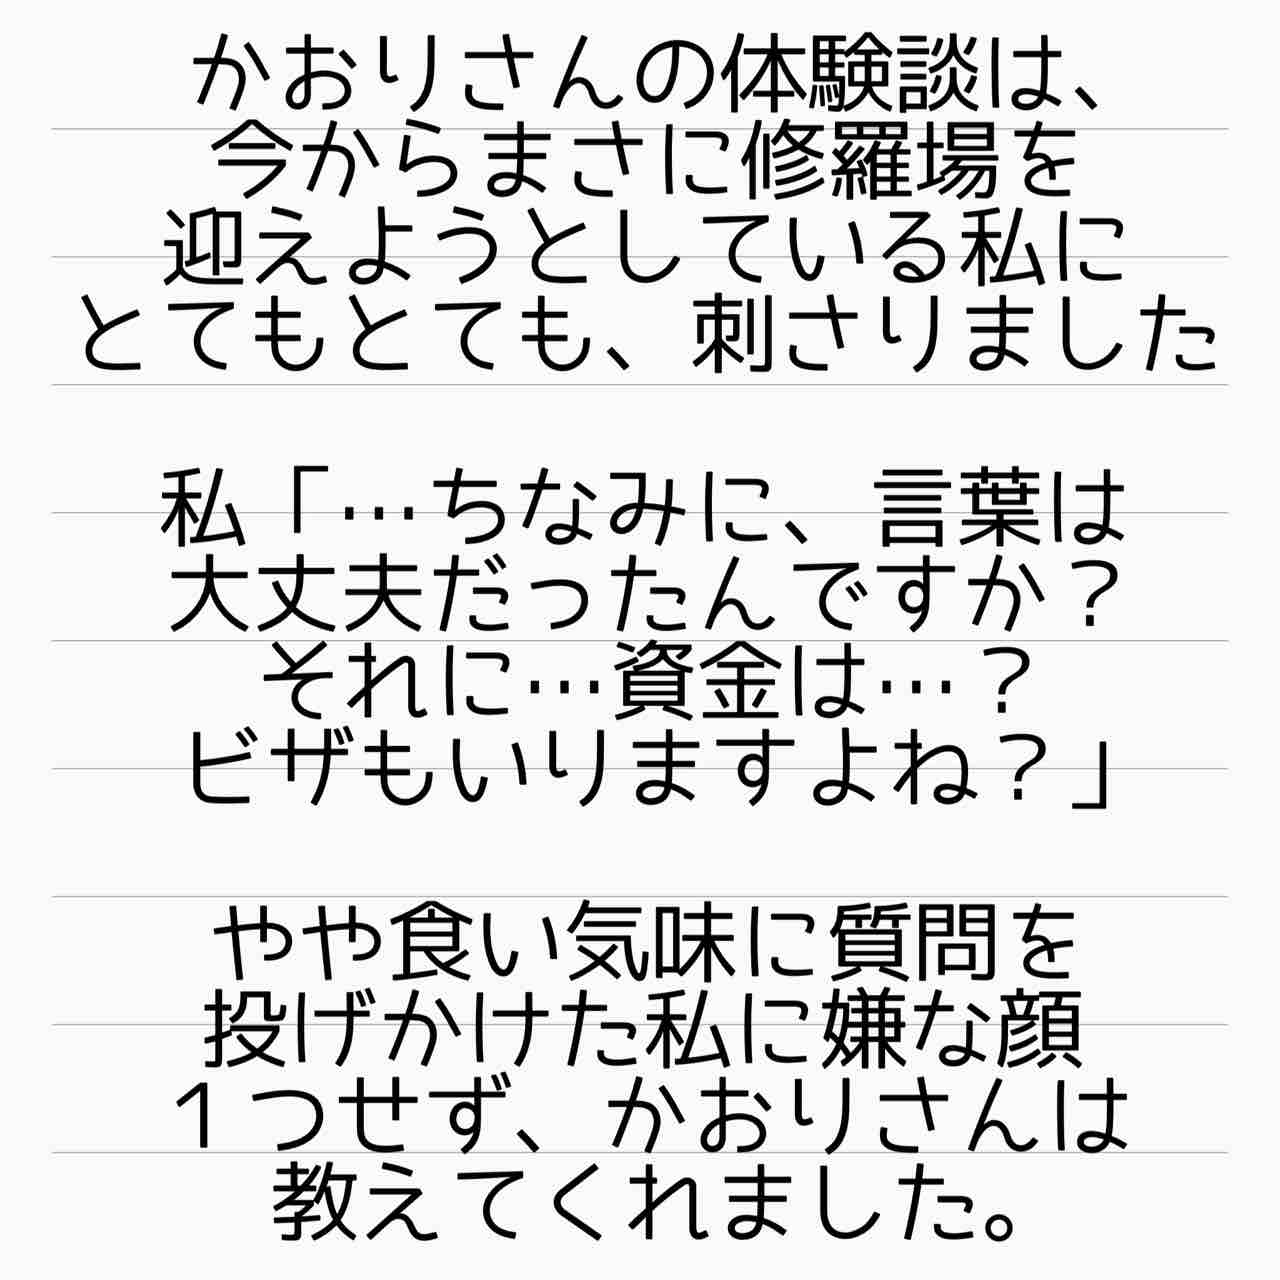 かおりさんの体験談は、
今からまさに修羅場を
迎えようとしている私に
とてもとても、刺さりました
私「…ちなみに、言葉は
大丈夫だったんですか？
それに…資金は…？
ビザもいりますよね？」
やや食い気味に質問を
投げかけた私に嫌な顔
１つせず、かおりさんは
教えてくれました。